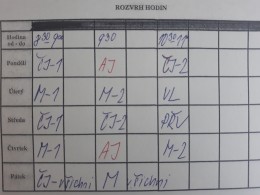 ROZVRH HODIN
Hodina od - do 8 30 9 00 9 30 10 30 11
Pondělí ČJ-1 AJ ČJ-2
Úterý M-1 M-2 VL
Středa ČJ-1 ČJ-2 PŘV
Čtvrtek M-1 AJ M-2
Pátek ČJ-všichni M všichni